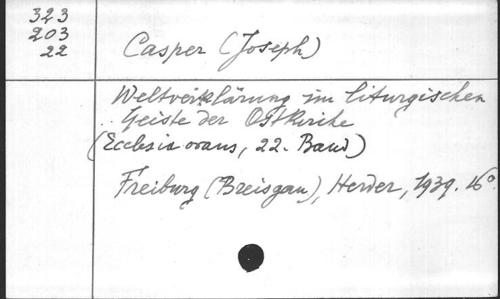 323
203
22
Casper (Joseph)
Weltverklärung im liturgischen
Geiste der Ostkirche
(Ecclesia orans, 22. Band)
Freiburg (Breisgau), Herder, 1939. 16°